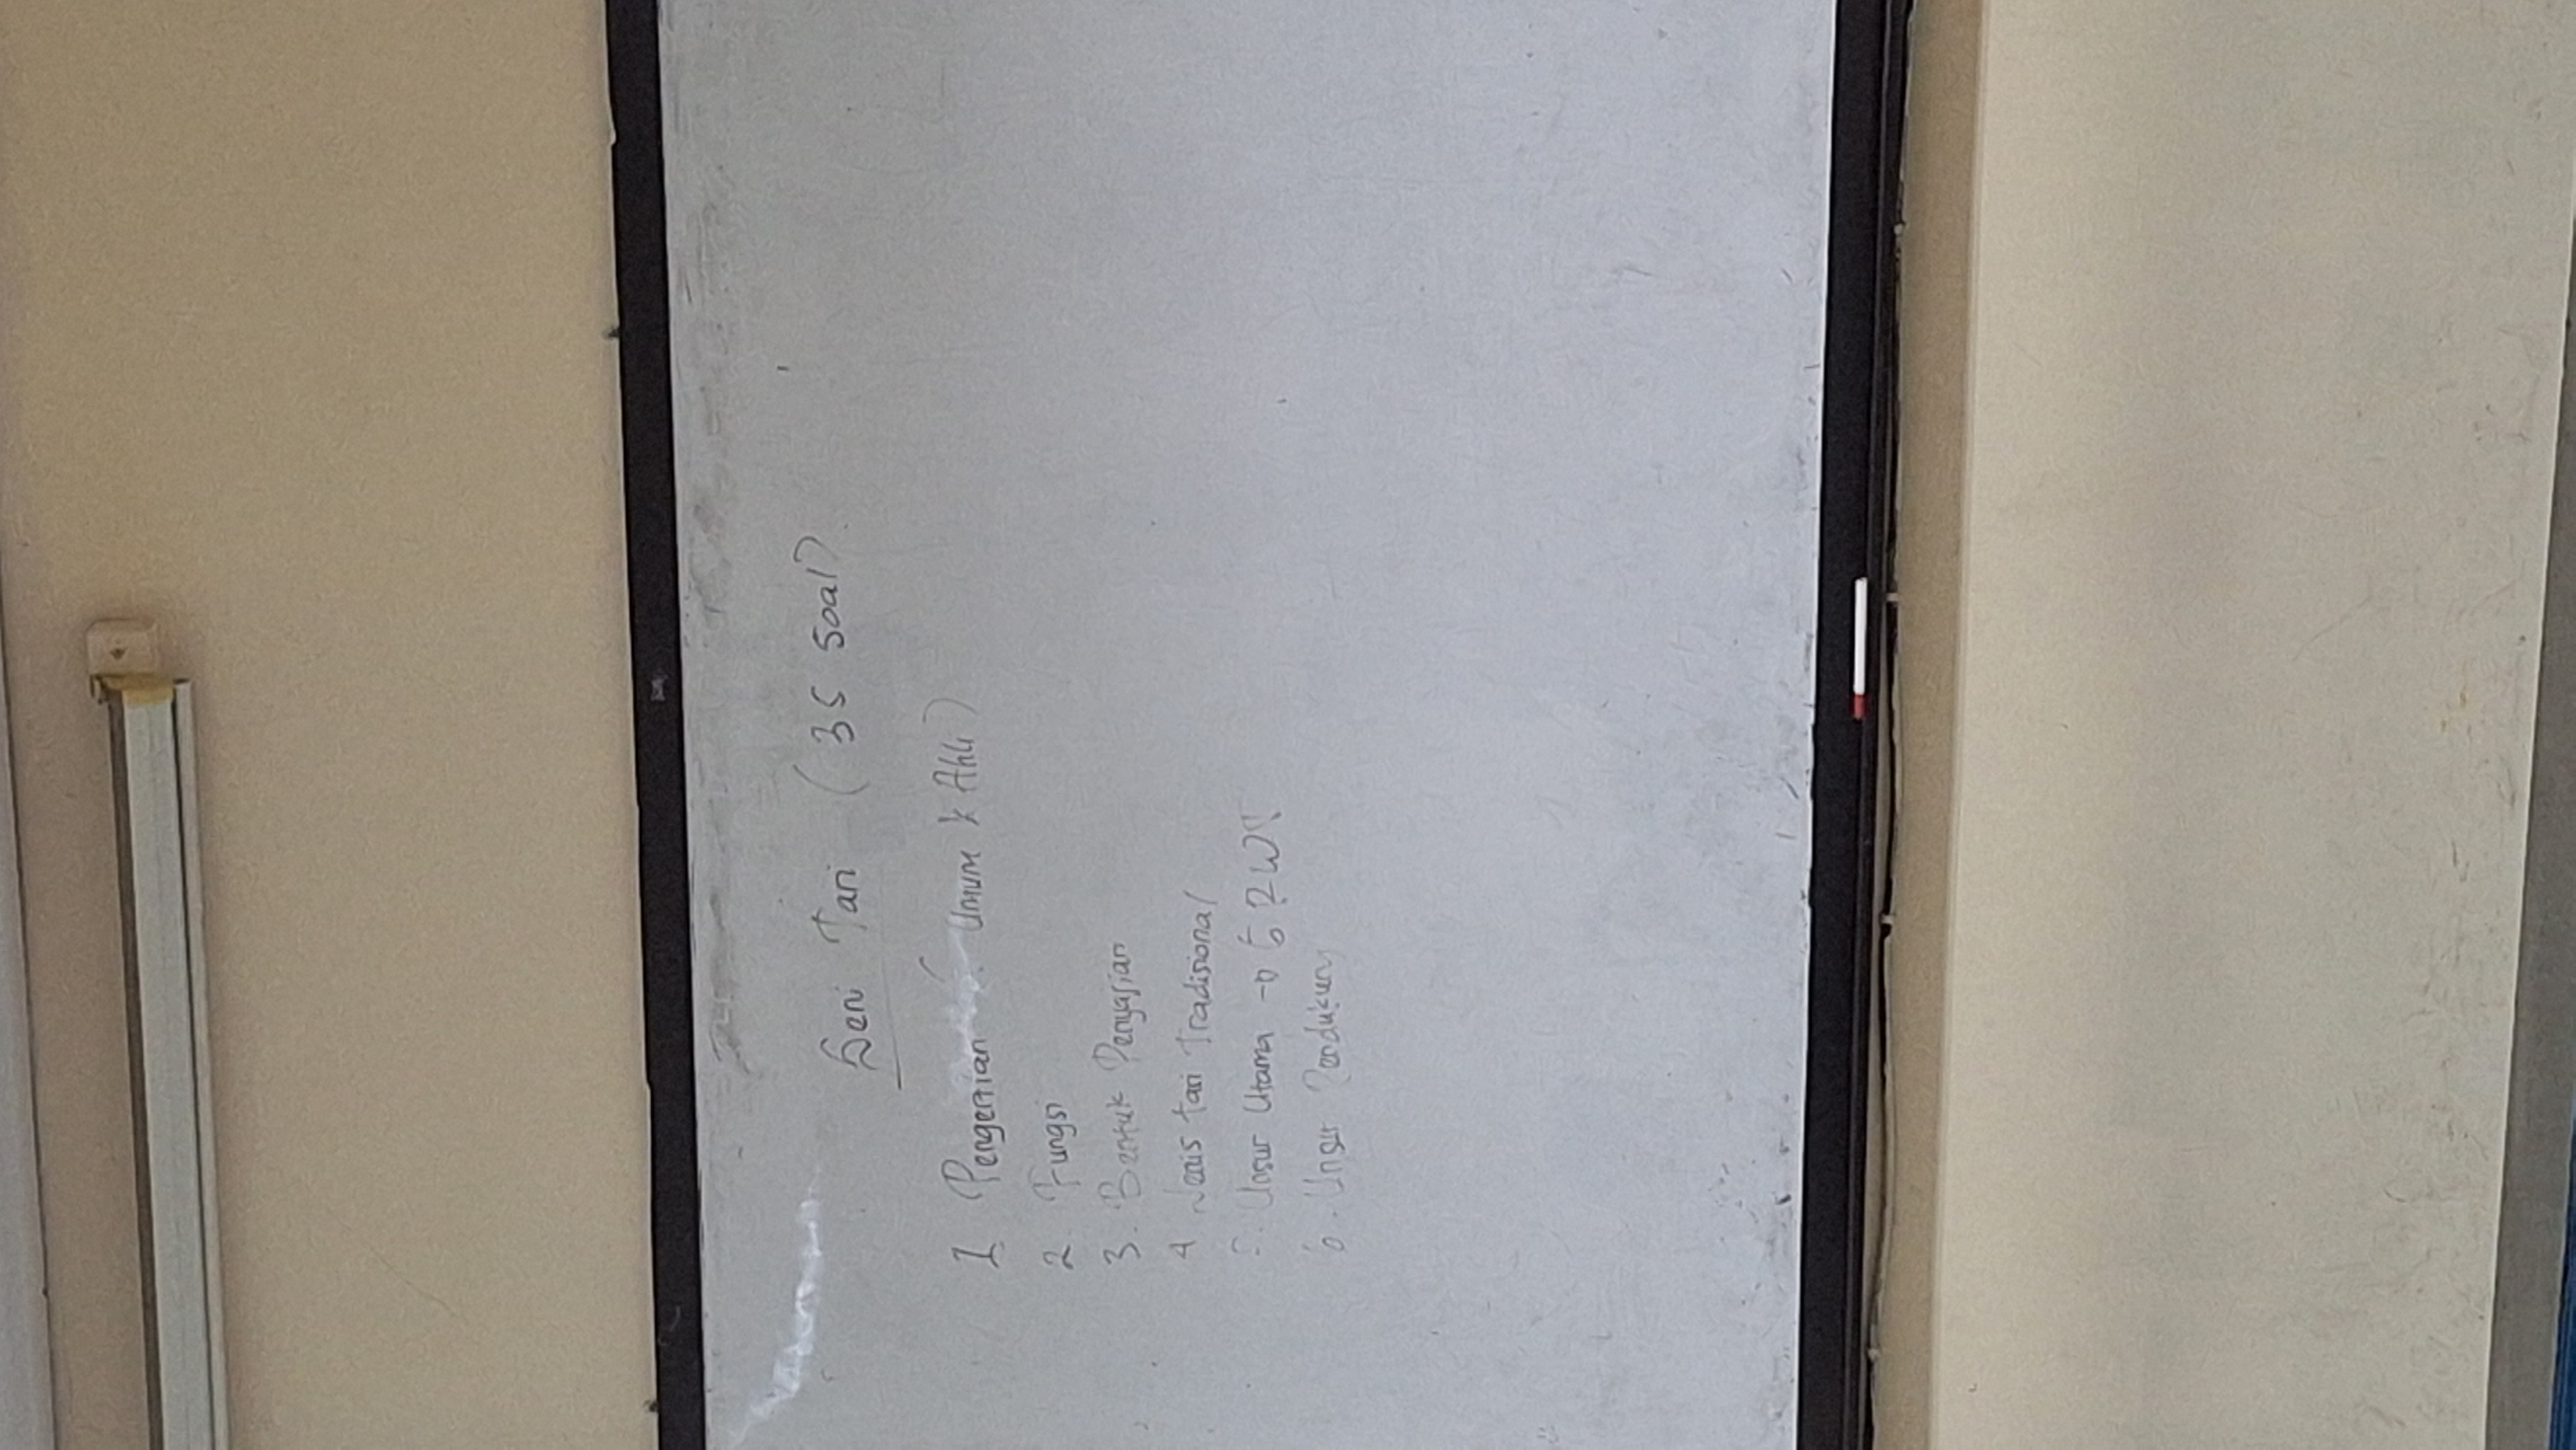 Seni Tari (35 Soal)
1 Pengertian (Umum & Ahli)
2 Fungsi
3. Bentuk Penyajian
4 Jenis tari Tradisional
5. Unsur Utama →
6. Unsur Pendukung